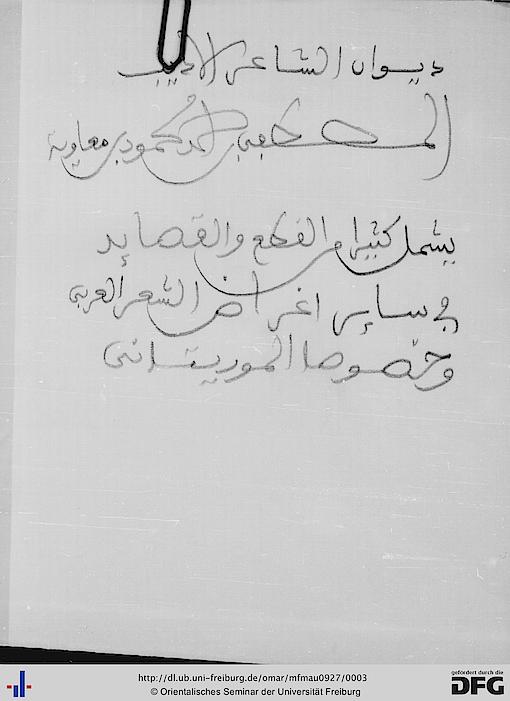 ديوان الشاعر الاديب
المصطفى بن احمد محمود بن معاوية
يشمل كثيرا من القطع والقصايد
في ساير اغراض الشعر العربي
وخصوصا الموريتاني
http://dl.ub.uni-freiburg.de/omar/mfmau0927/0003
© Orientalisches Seminar der Universität Freiburg
gefördert durch die
DFG